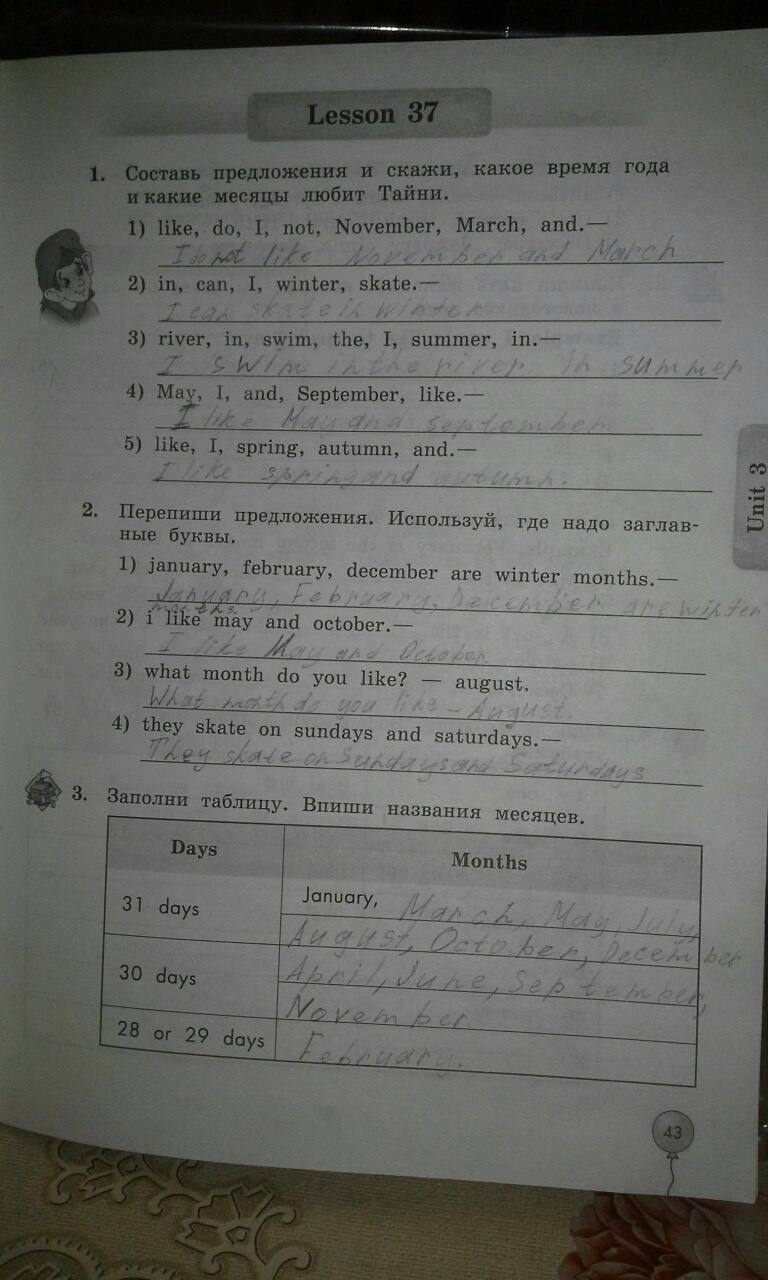 Lesson 37
1. Составь предложения и скажи, какое время года
и какие месяцы любит Тайни.
1) like, do, I, not, November, March, and.—
I do not like November and March
2) in, can, I, winter, skate.—
I can skate in winter
3) river, in, swim, the, I, summer, in.—
I swim in the river in summer
4) May, I, and, September, like.—
I like May and september
5) like, I, spring, autumn, and.—
I like spring and autumn.
2. Перепиши предложения. Используй, где надо заглав-
ные буквы.
1) january, february, december are winter months.—
January, February, December are winter
months.
2) i like may and october.—
I like May and October
3) what month do you like? — august.
What month do you like – August.
4) they skate on sundays and saturdays.—
They skate on Sundays and Saturdays
3. Заполни таблицу. Впиши названия месяцев.
Days Months
31 days January, March, May, July,
August, October, December
30 days April, June, September,
November
28 or 29 days February.
Unit 3
43